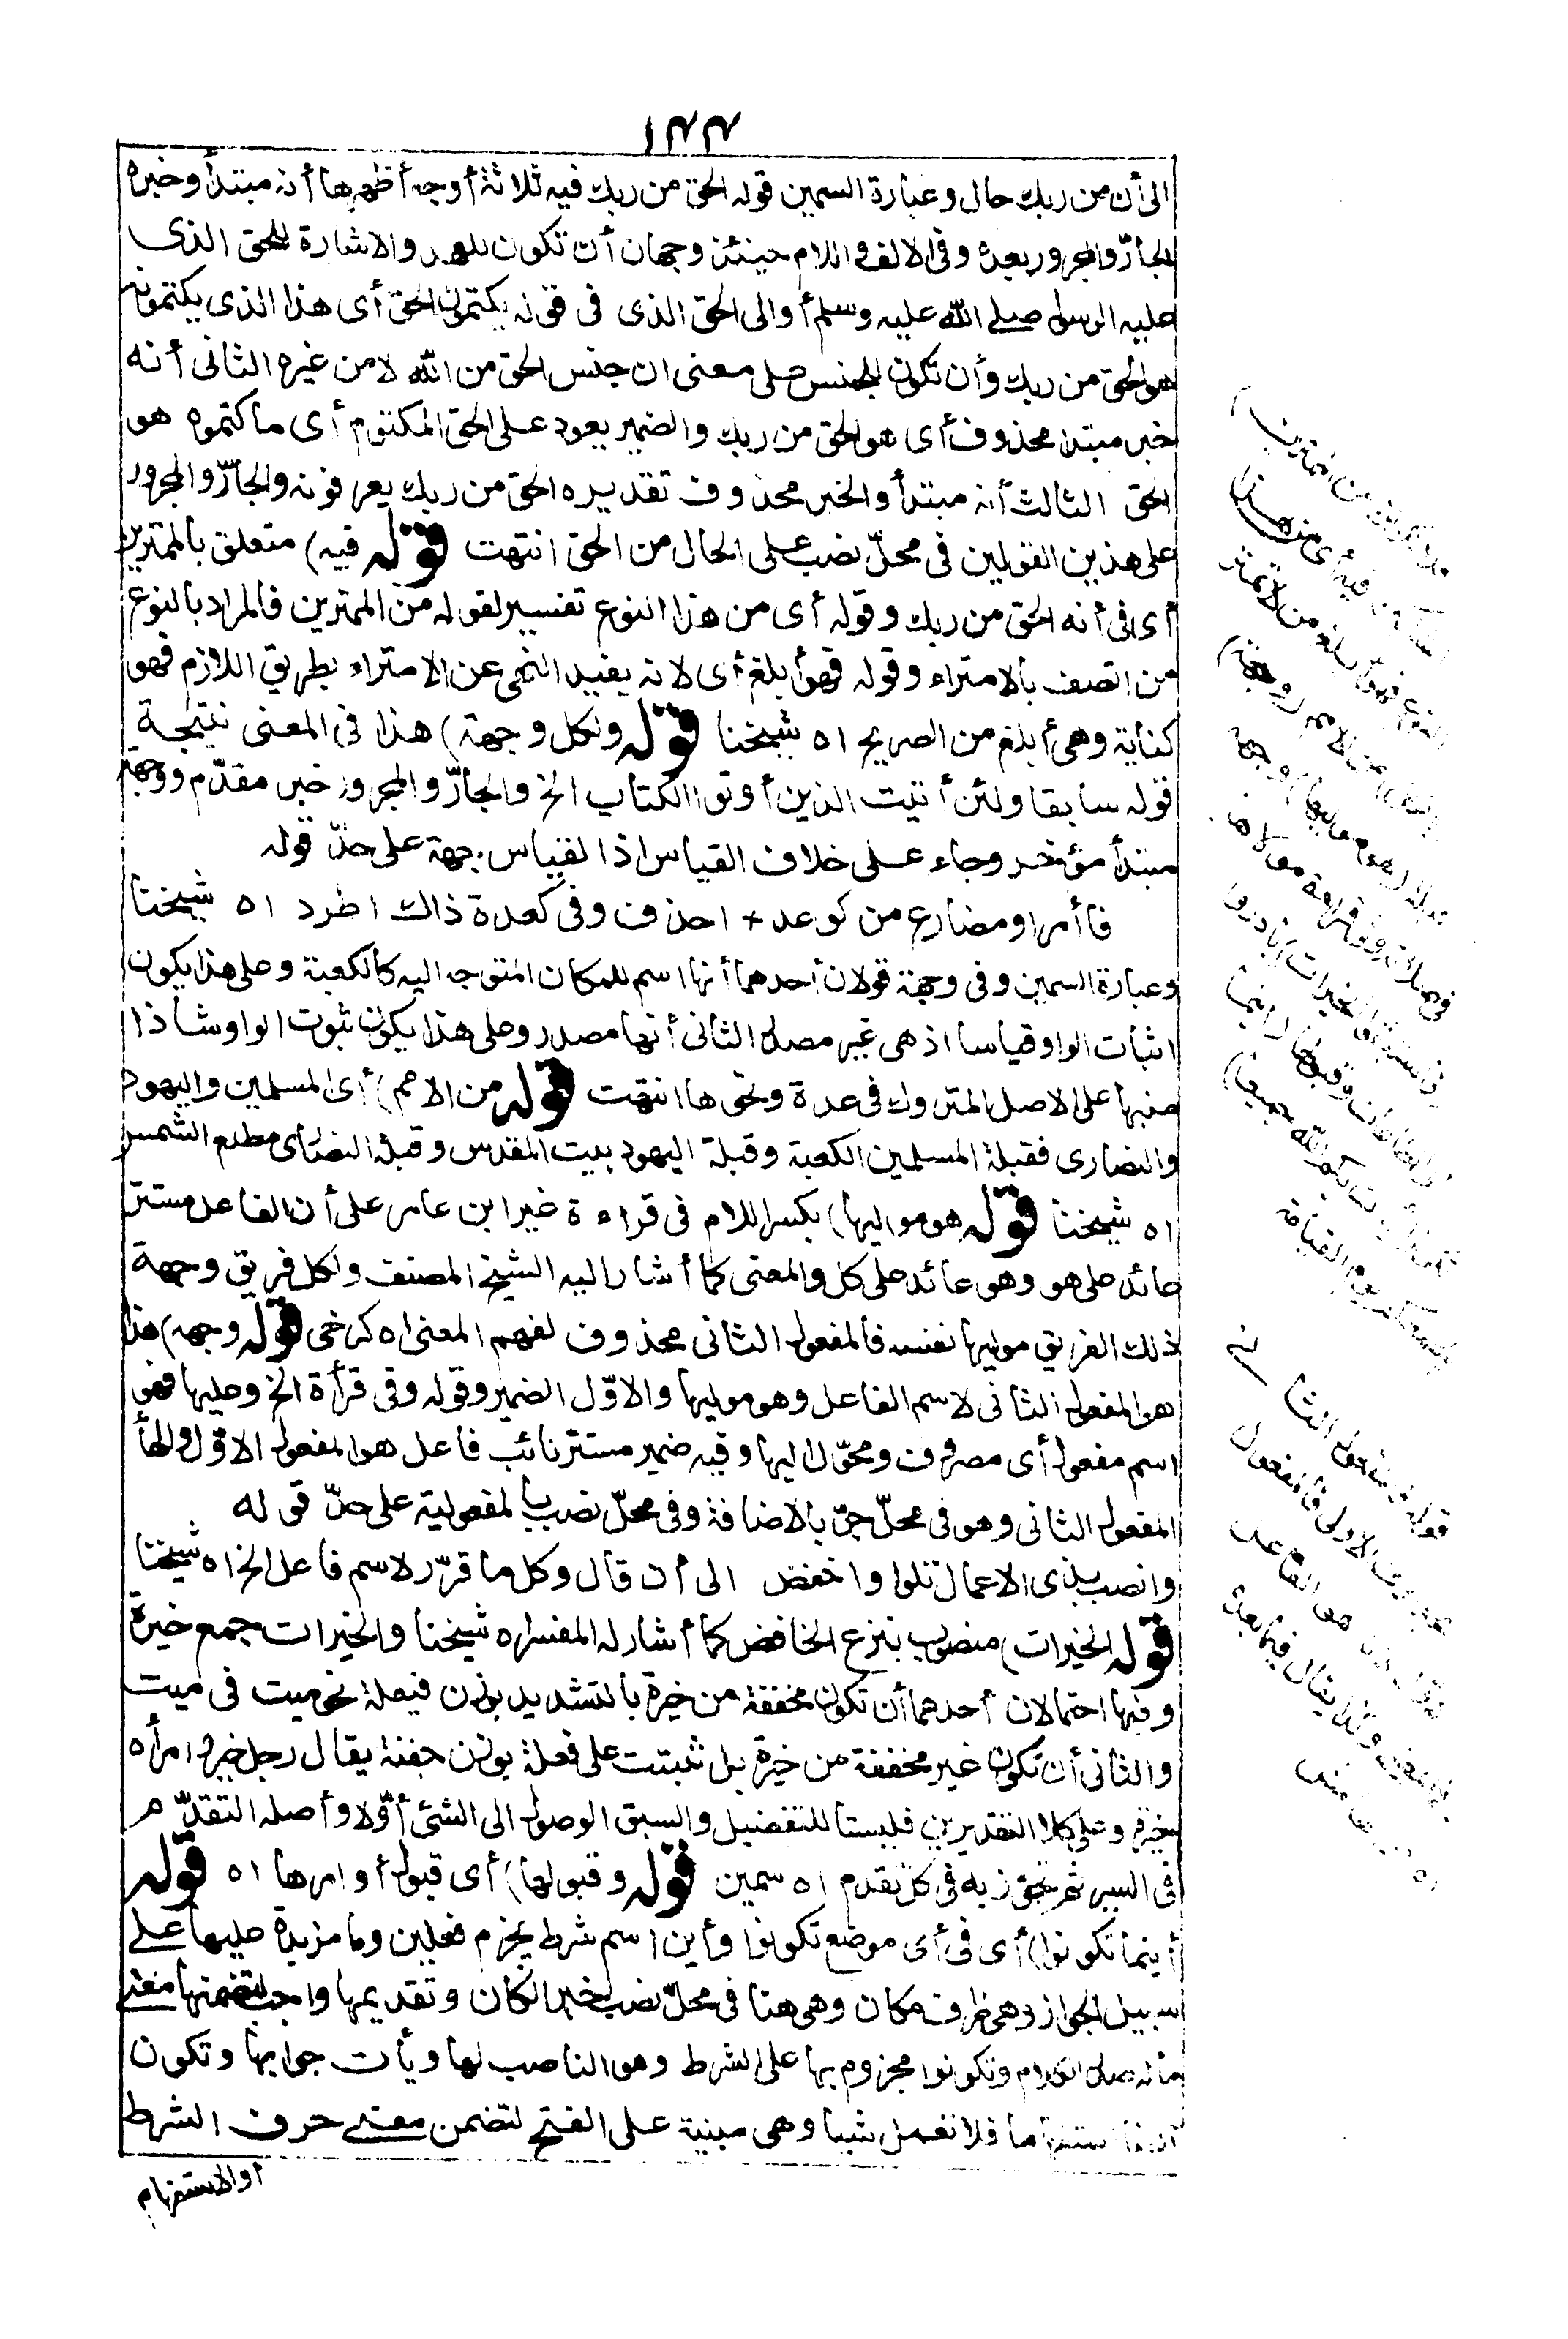 ١٣٣
الى أن من ربك حال وعبارة السمين قوله الحق من ربك فيه ثلاثة أوجه أظهرها أنه مبتدأ وخبره
الجارّ والمجرور بعده وفى الالف واللام حينئذ وجهان أن تكون للعهد والاشارة للحق الذى
عليه الرسول صلى الله عليه وسلم أو الى الحق الذى فى قوله يكتمون الحق أى هذا الذى يكتمونه
هو الحق من ربك وأن تكون للجنس على معنى ان جنس الحق من الله لا من غيره الثانى أنه
خبر مبتدا محذوف أى هو الحق من ربك والضمير يعود على الحق المكتوم أى ما كتموه هو
الحق الثالث أنه مبتدأ والخبر محذوف تقديره الحق من ربك يعرفونه والجارّ والمجرور
على هذين القولين فى محلّ نصب على الحال من الحق انتهت قوله فيه) متعلق بالممترين
أى فى أنه الحق من ربك وقوله أى من هذا النوع تفسير لقوله من الممترين فالمراد بالنوع
من اتصف بالامتراء وقوله فهو أبلغ أى لانه يفيد النهى عن الامتراء بطريق اللازم فهو
كناية وهى أبلغ من الصريح اه شيخنا قوله ولكل وجهة) هذا فى المعنى نتيجة
قوله سابقا ولئن أتيت الذين أوتوا الكتاب الخ والجارّ والمجرور خبر مقدّم ووجهة
مبتدأ مؤخر وجاء على خلاف القياس اذ القياس جهة على حدّ قوله
فا أمر او مضارع من كوعد + احذف وفى كعدة ذاك اطرد اه شيخنا
وعبارة السمين وفى وجهة قولان أحدهما أنها اسم للمكان المتوجه اليه كالكعبة وعلى هذا يكون
اثبات الواو قياسا اذ هى غير مصدر الثانى أنها مصدر وعلى هذا يكون ثبوت الواو شاذا
منبها على الاصل المتروك فى عدة ونحوها انتهت قوله من الامم) أى المسلمين واليهود
والنصارى فقبلة المسلمين الكعبة وقبلة اليهود بيت المقدس وقبلة النصارى مطلع الشمس
اه شيخنا قوله هو موليها) بكسر اللام فى قراءة غير ابن عامر على أن الفاعل مستتر
عائد على هو وهو عائد على كل والمعنى كما أشار اليه الشيخ المصنف ولكل فريق وجهة
ذلك الفريق موليها نفسه فالمفعول الثانى محذوف لفهم المعنى اه كرخى قوله وجهه) هذا
هو المفعول الثانى لاسم الفاعل وهو موليها والاوّل الضمير وقوله وفى قرأة الخ وعليها فهو
اسم مفعول أى مصروف ومحوّل اليها وفيه ضمير مستتر نائب فاعل هو المفعول الاوّل والهاأ
المفعول الثانى وهو فى محلّ جرّ بالاضافة وفى محلّ نصب بالمفعولية على حدّ قوله
وانصب بذى الاعمال تلوا واخفض الى أن قال وكل ما قرّر لاسم فاعل الخ اه شيخنا
قوله الخيرات) منصوب بنزع الخافض كما أشار له المفسر اه شيخنا والخيرات جمع خيرة
وفيها احتمالان أحدهما أن تكون مخففة من خيرة بالتشديد بوزن فيعلة نحو ميت فى ميت
والثانى أن تكون غير مخففة من خيرة بل ثبتت على فعلة بوزن جفنة يقال رجل خير وامرأه
خيرة وعلى كلا التقديرين فليستا للتفضيل والسبق الوصول الى الشئ أوّلا وأصله التقدّم
فى السير ثم تجوّز به فى كل تقدم اه سمين قوله وقبولها) أى قبول أوامرها اه قوله
أينما تكونوا) أى فى أى موضع تكونوا وأين اسم شرط يجزم فعلين وما مزيدة عليها على
سبيل الجواز وهى ظرف مكان وهى هنا فى محلّ نصب خبر الكان وتقديمها واجب لتضمنها معنى
ماله صدر الكلام وتكونوا مجزوم بها على الشرط وهو الناصب لها ويأت جوابها وتكون
استفهاما فلا تعمل شيا وهى مبنية على الفتح لتضمن معنى حرف الشرط
أو الاستفهام
من الممترين)
فيه أى من هذا
النوع فهو أبلغ من لا تمتر
من الامم (وجهة)
(هو موليها) وجهه
فى صلاته وفى قراءة مولاها
(فاستبقوا الخيرات) بادروا
الطاعات وقبولها (أينما
تكونوا يأت بكم الله جميعا)
يجمعكم يوم القيامة
قوله المفعول الثانى
الاولى فالمفعول
هو الفاعل
وكذا يقال فيما بعده